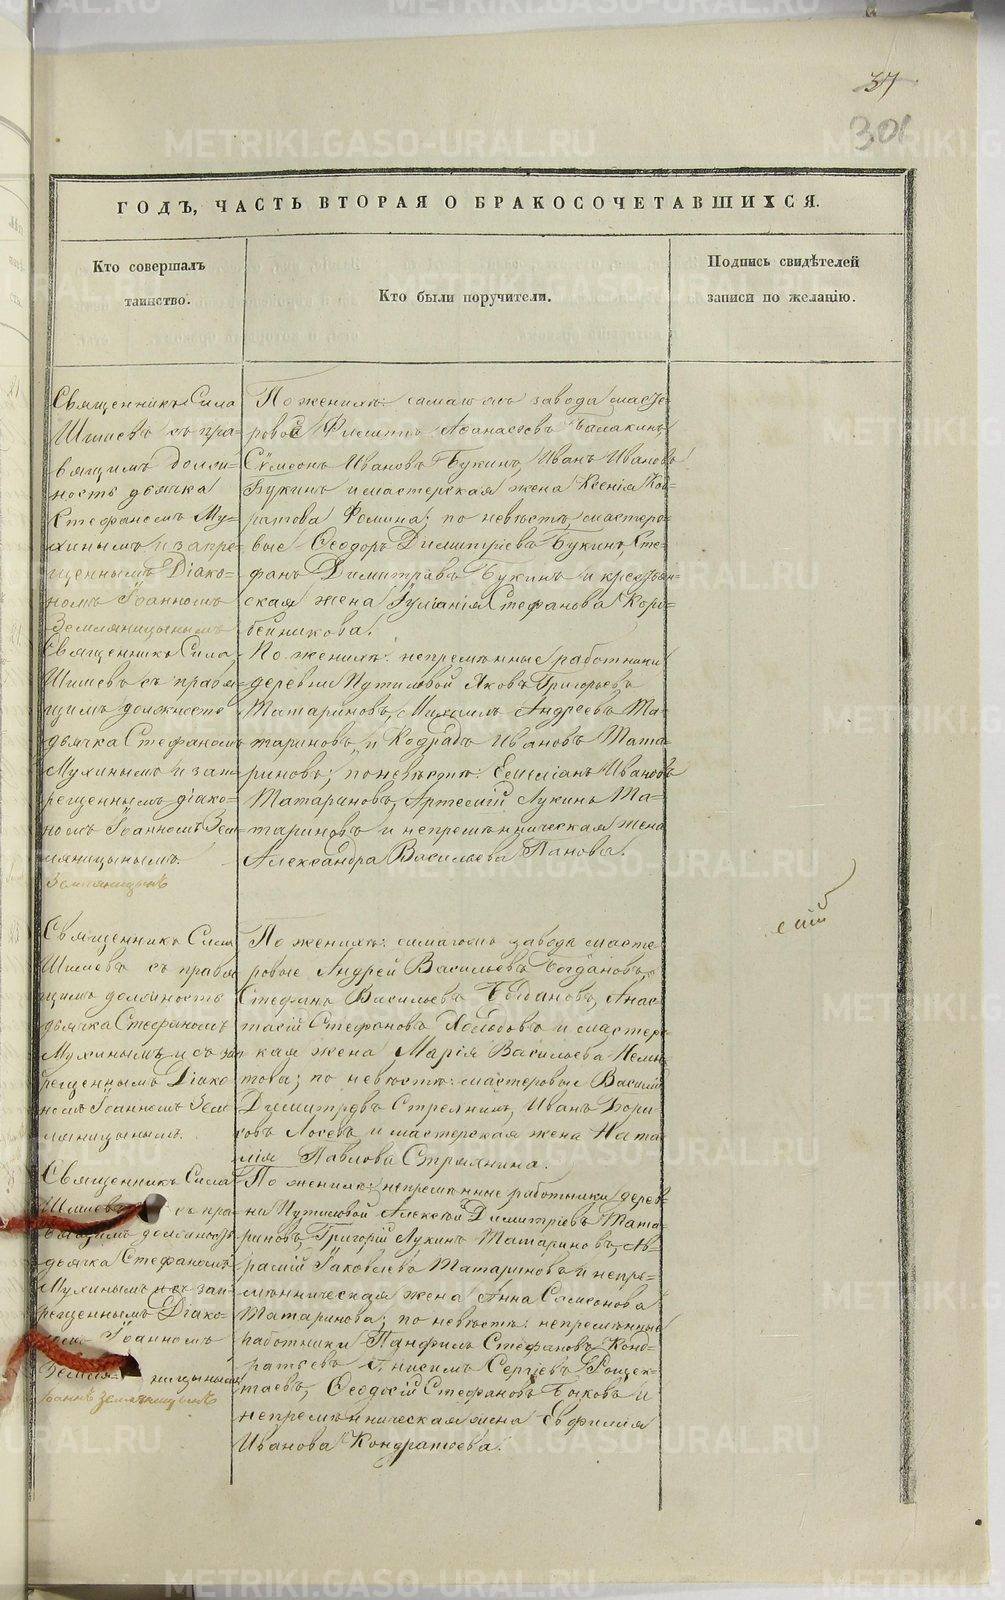 37
301
ГОДЪ, ЧАСТЬ ВТОРАЯ О БРАКОСОЧЕТАВШИХСЯ.
Кто совершалъ
таинство.
Кто были поручители.
Подпись свидѣтелей
записи по желанію.
Священникъ Сила
Шишевъ съ пра-
вящимъ долж-
ность дьячка
Стефаномъ Му-
хинымъ и запре-
щеннымъ Діако-
номъ Іоанномъ
Земляницынымъ
По женихѣ: завода масте-
ровые Филиппъ Аѳанасьевъ Балакинъ,
Сѵмеонъ Ивановъ Букинъ, Иванъ Ивановъ
Букинъ и мастерская жена Ксенія Кон-
ратова Ѳомина; по невѣстѣ, мастеро-
вые Ѳеодоръ Димитріевъ Букинъ, Сте-
фанъ Димитріевъ Букинъ и крестьян-
ская жена Іуліанія Стефанова Коро-
бейникова.
Священникъ Сила
Шишевъ съ правя-
щимъ должность
дьячка Стефаномъ
Мухинымъ и зап-
рещеннымъ діако-
номъ Іоанномъ Зем-
ляницынымъ
По женихѣ: непремѣнные работники
деревни Путиловой Яковъ Григорьевъ
Татариновъ, Михаилъ Андреевъ Та-
тариновъ, и Кодратъ Ивановъ Тата-
риновъ; по невѣстѣ: Емиліанъ Ивановъ
Татариновъ, Артемій Лукинъ Та-
тариновъ и непремѣнническая жена
Александра Васильева Панова.
Священникъ Сила
Шишевъ съ правя
щимъ должность
дьячка Стефаномъ
Мухинымъ и съ зап
рещеннымъ Діако
номъ Іоанномъ Зем
ляницынымъ.
По женихѣ: завода масте
ровые Андрей Васильевъ Богдановъ,
Стефанъ Васильевъ Богдановъ, Анас-
тасій Стефановъ и мастерс
кая жена Марія Васильева
това; по невѣстѣ: мастеровые Василій
Димитревъ Стрянинъ, Иванъ Бори
совъ Лосевъ и мастерская жена Ната
лія Павлова Стрянина.
сіи
Священникъ Сила
Шишевъ съ пра-
вящимъ должность
дьячка Стефаномъ
Мухинымъ и съ зап-
рещеннымъ Діако-
номъ Іоанномъ
Земля- ницынымъ
Іоаннъ Земляницынъ
По женихѣ: непремѣнные работники дерев
ни Путиловой Алексѣй Димитріевъ Тата-
риновъ, Григорій Лукинъ Татариновъ, Ав-
рамій Іаковлевъ Татариновъ и непре-
мѣнническая жена Анна Самсонова
Татаринова; по невѣстѣ: непремѣнные
работники Панфилъ Стефановъ Конд-
ратьевъ, Онисимъ Сергіевъ Рощек-
таевъ, Ѳеодосій Стефановъ Быковъ и
непремѣнническая жена Евфимія
Иванова Кондратьева.
METRIKI.GASO-URAL.RU